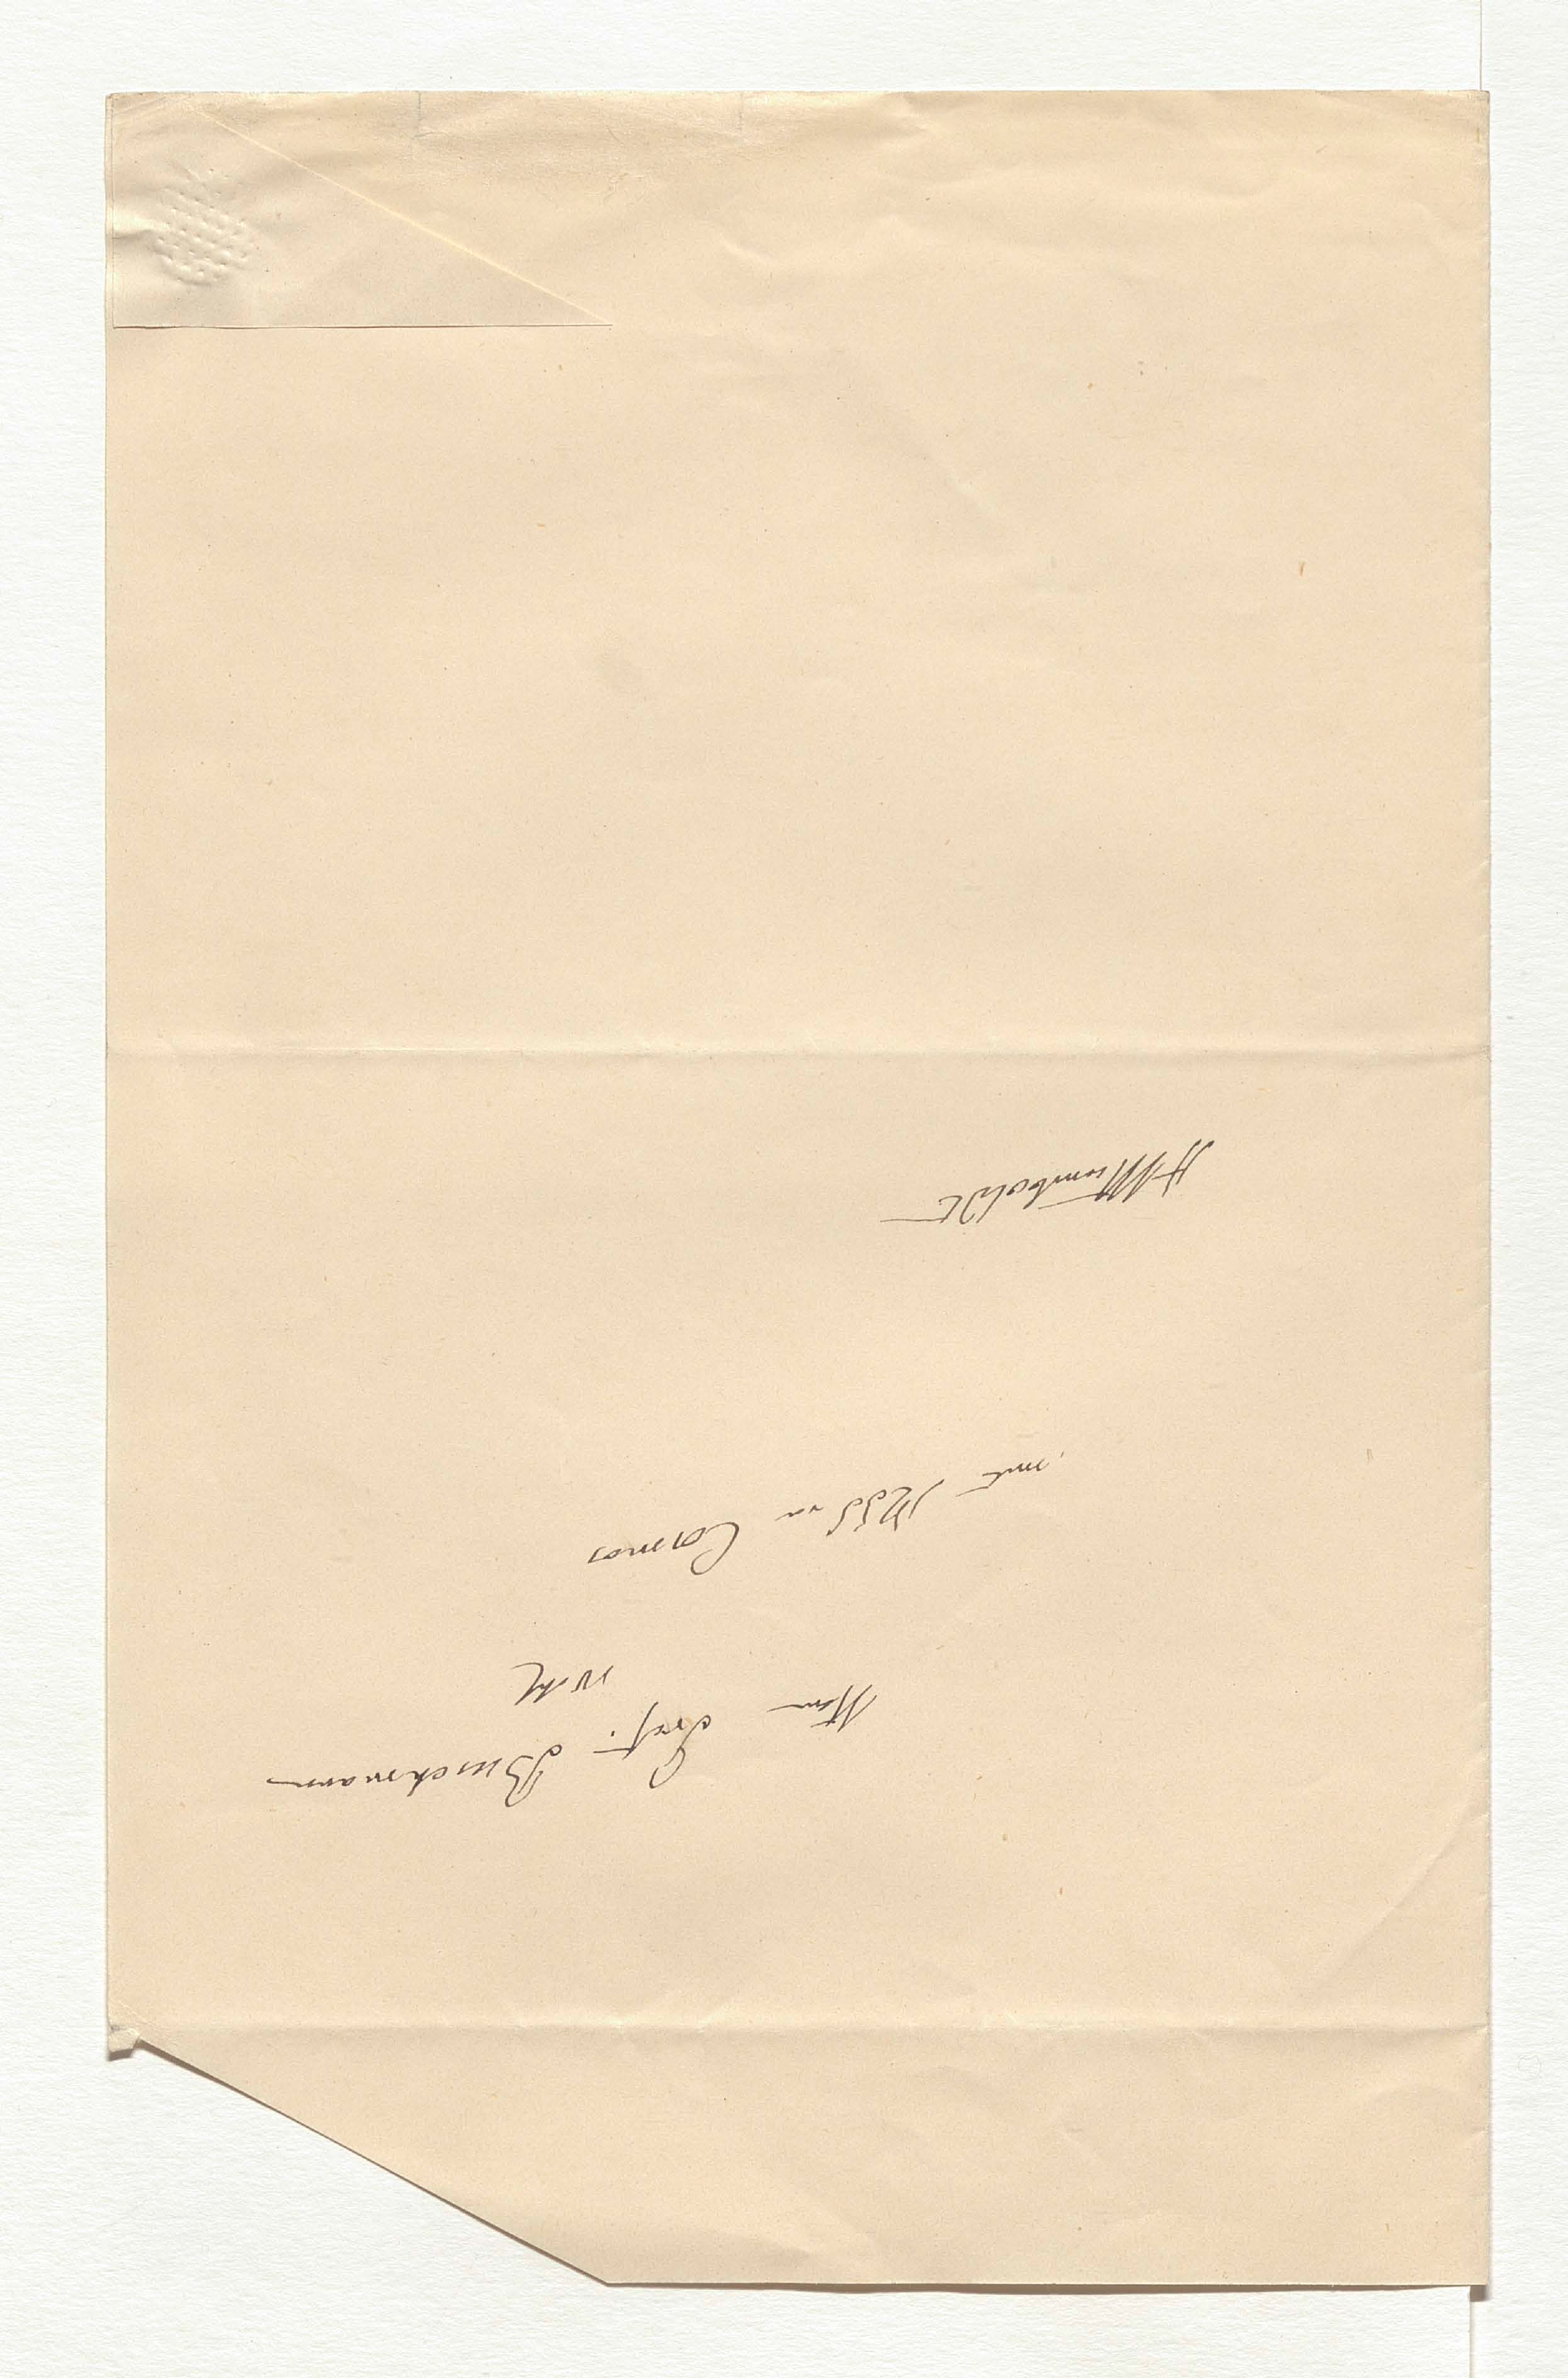 Herrn Prof. Buschmann
mit Mss von Cosmos
AHumboldt